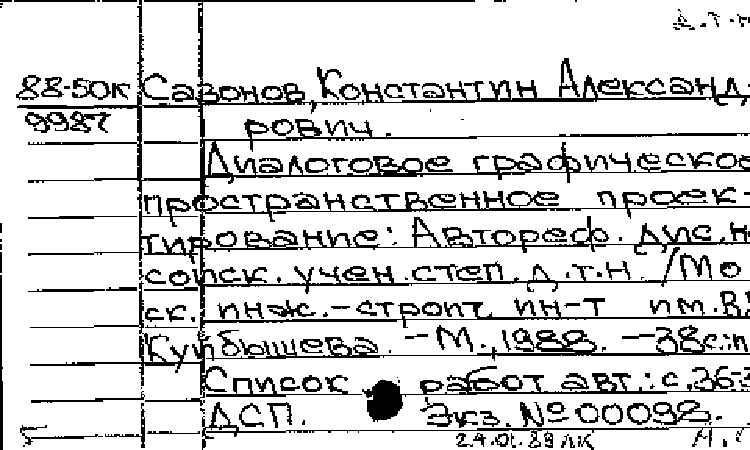 д.т.н
88-50К Сазонов, Константин Александ-
9987 рович.
Диалоговое графическое
пространственное проек-
тирование: Автореф. дис. н
соиск. учен. степ. д.т.н. /Мо
ск. инж.-строит. ин-т им. В.
Куйбышева. - М., 1988. - 38с.:
Список работ авт.: с. 36-3
ДСП. Экз. № 00098.
24.01.89